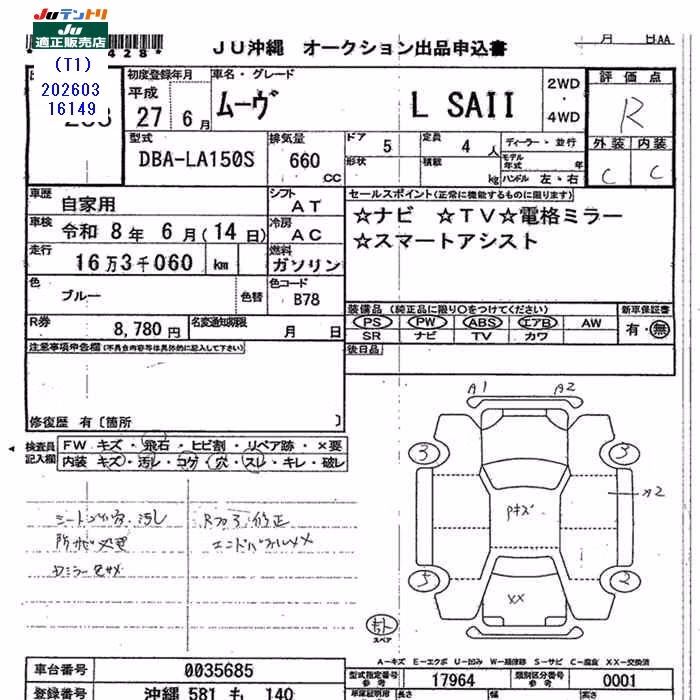 JUテントリ
JU
適正販売店
(T1)
202603
16149
428*
JU沖縄 オークション出品申込書
月 日AA
初度登録年月
平成
27 6月
車名・グレード
ムーヴ L SAII
2WD
・
4WD
評価点
R
外装 内装
C C
型式
DBA-LA150S
排気量
660
CC
ドア 5
定員 4 人
形状
積載 kg
ディーラー・並行
モデル年式 年
ハンドル 左・右
車歴
自家用
シフト
AT
車検 令和 8年 6月(14日)
冷房
AC
走行
16万3千060 km
燃料
ガソリン
色
ブルー
色替
色コード
B78
R券 8,780円
名変通知期限 月 日
セールスポイント(正常に機能するものに限ります)
☆ナビ ☆TV☆電格ミラー
☆スマートアシスト
装備品(純正品に限り○をつけてください)
PS PW ABS エアB AW
SR ナビ TV カワ
新車保証書
有・無
後日品
注意事項申告欄(不具合内容等は具体的に記入して下さい)
修復歴 有[箇所 ]
検査員
記入欄
FW キズ・飛石・ヒビ割・リペア跡・×要
内装 キズ・汚レ・コゲ・穴・スレ・キレ・破レ
A1 A2
3 3
A2
5 2
XX
スペア
A−キズ E−エクボ U−凹み W−補修跡 S−サビ C−腐食 XX−交換済
車台番号 0035685
型式指定番号
参考
17964
類別区分番号
参考
0001
登録番号 沖縄 581 も 140
車庫証明用 長さ 幅 高さ